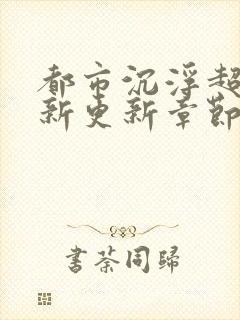 都市沉浮超
新更新章節
書荼同歸